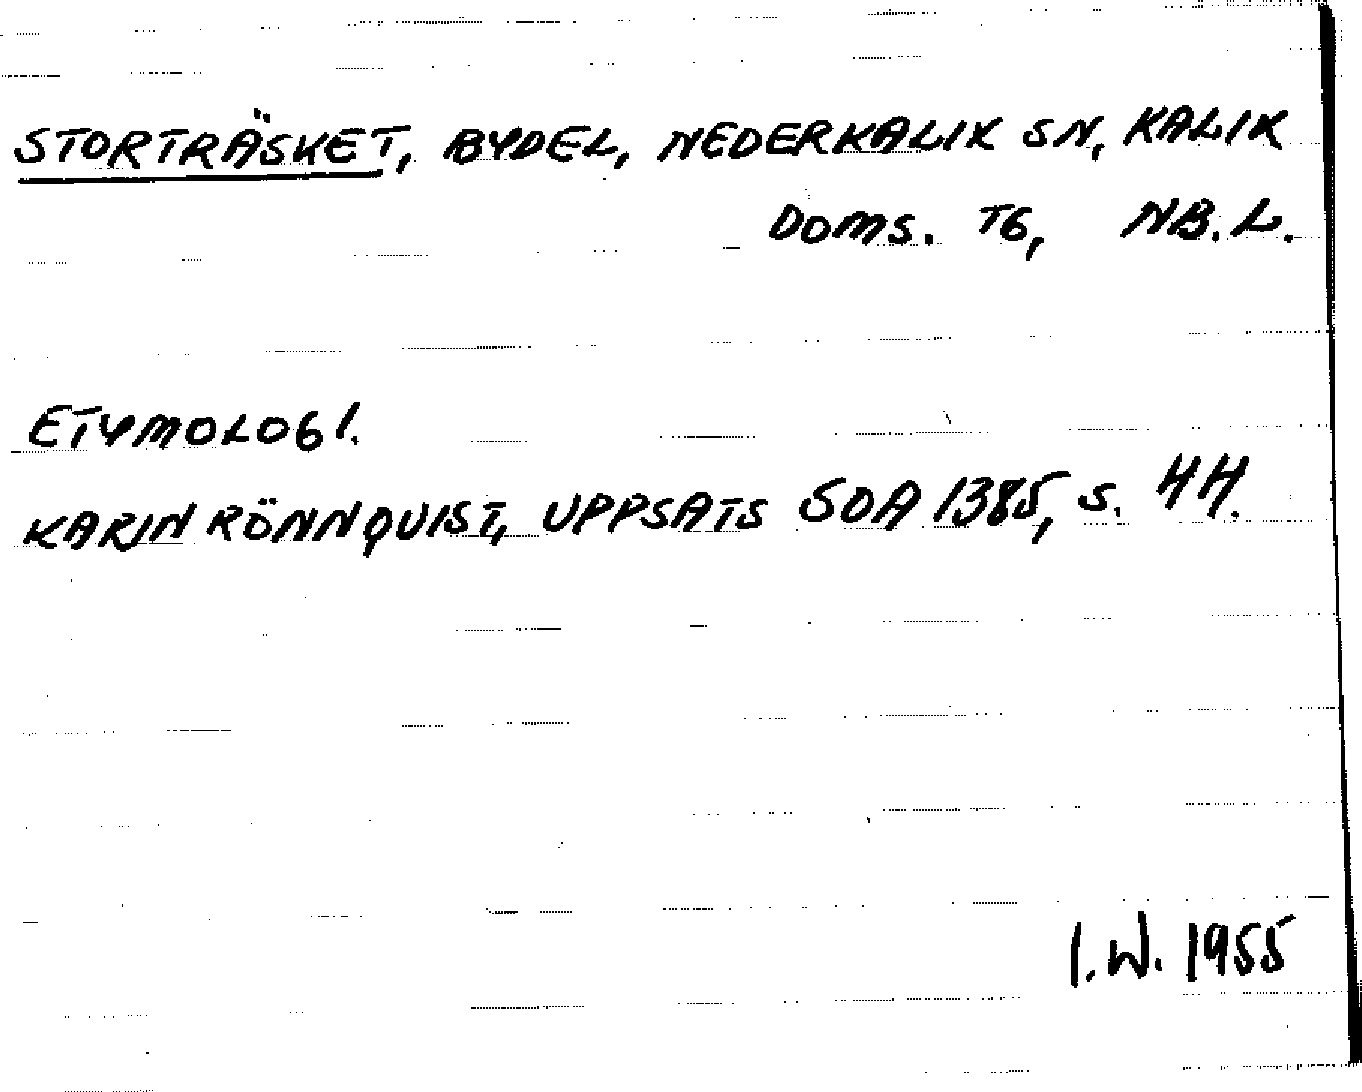 STORTRÄSKET, BYDEL, NEDERKALIX SN, KALIX
DOMS. TG, NB.L.
ETYMOLOGI.
KARIN RÖNNQUIST, UPPSATS SOA 1385, S. 44.
I.W. 1955